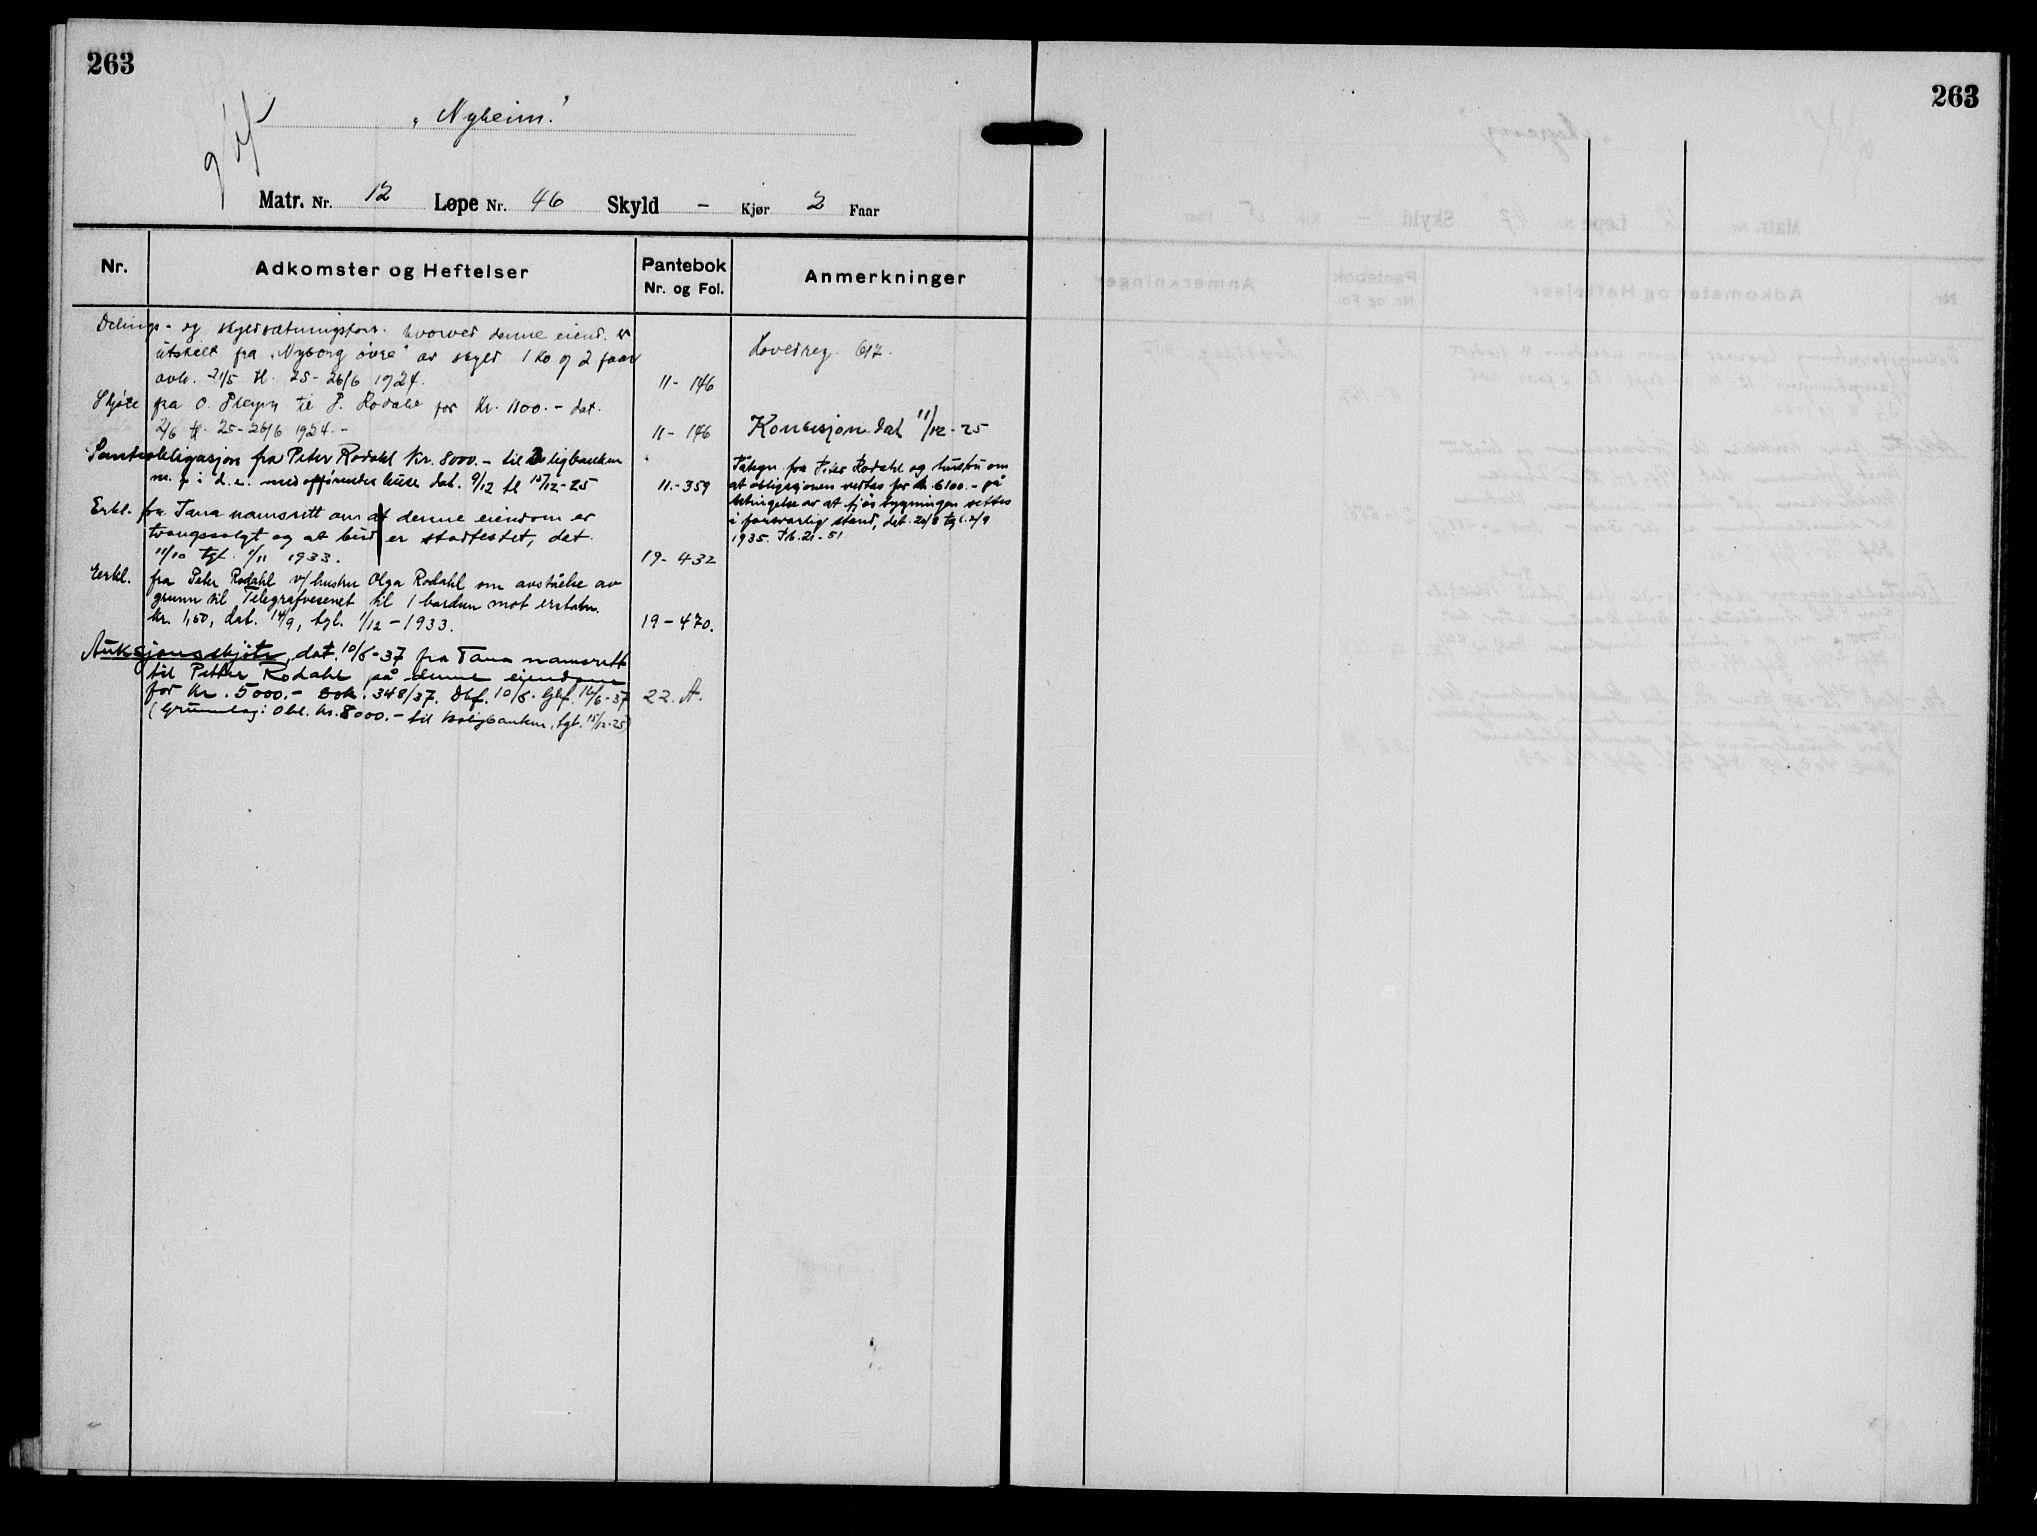 263
263
"Nyheim."
Matr. Nr. 12 Løpe Nr. 46 Skyld - Kjør 2 Faar
Nr.
Adkomster og Heftelser
Pantebok
Nr. og Fol.
Anmerkninger
Delings- og skyldsætningsforr. hvorved denne eiend. er
utskilt fra "Nyborg øvre" av skyld 1 Ko og 2 faar
avh. 21/5 tl. 25-26/6 1924. 11-146
Hovedreg. 617.
Skjøte fra O. til P. Rodahl for Kr. 1100.- dat.
2/6 tl. 25-26/6 1924.- 11-146
Konsesjon dat 11/12-25
Pantobligasjon fra Peter Rodahl Kr. 8000.- til Boligbanken
m. p. i d. e. med oppførendes huse dat. 9/12 tl 15/12-25 11.-359
Påtegn. fra Peter Rodahl og hustru om
at obligasjonen nedtas for kr. 6100.- på
betingelse av at fjøsbygningen settes
i forsvarlig stand, dat. 20/8 tgl. 2/9
1935. Pb. 21-51
Erkl. fra Tana namsrett om at denne eiendom er
tvangssolgt og at bud er stadfestet, dat.
11/10 tgl. 1/11 1933. 19-432
Eerkl. fra Peter Rodahl v/hustru Olga Rodahl om avståelse av
grunn til Telegrafvesenet til 1 bardun mot erstatn.
kr. 1,50, dat. 14/9, tgl. 1/12-1933. 19-470.
Auksjonsskjøte, dat. 10/6-37 fra Tana namsrett
til Petter Rodahl på denne eiendom
for kr. 5000.- Dok. 348/37. Dbf. 10/6. Gbf. 16/6-37 22. A.
(Grunnlag: Obl. kr. 8000.- til Boligbanken, tgl. 15/12-25)